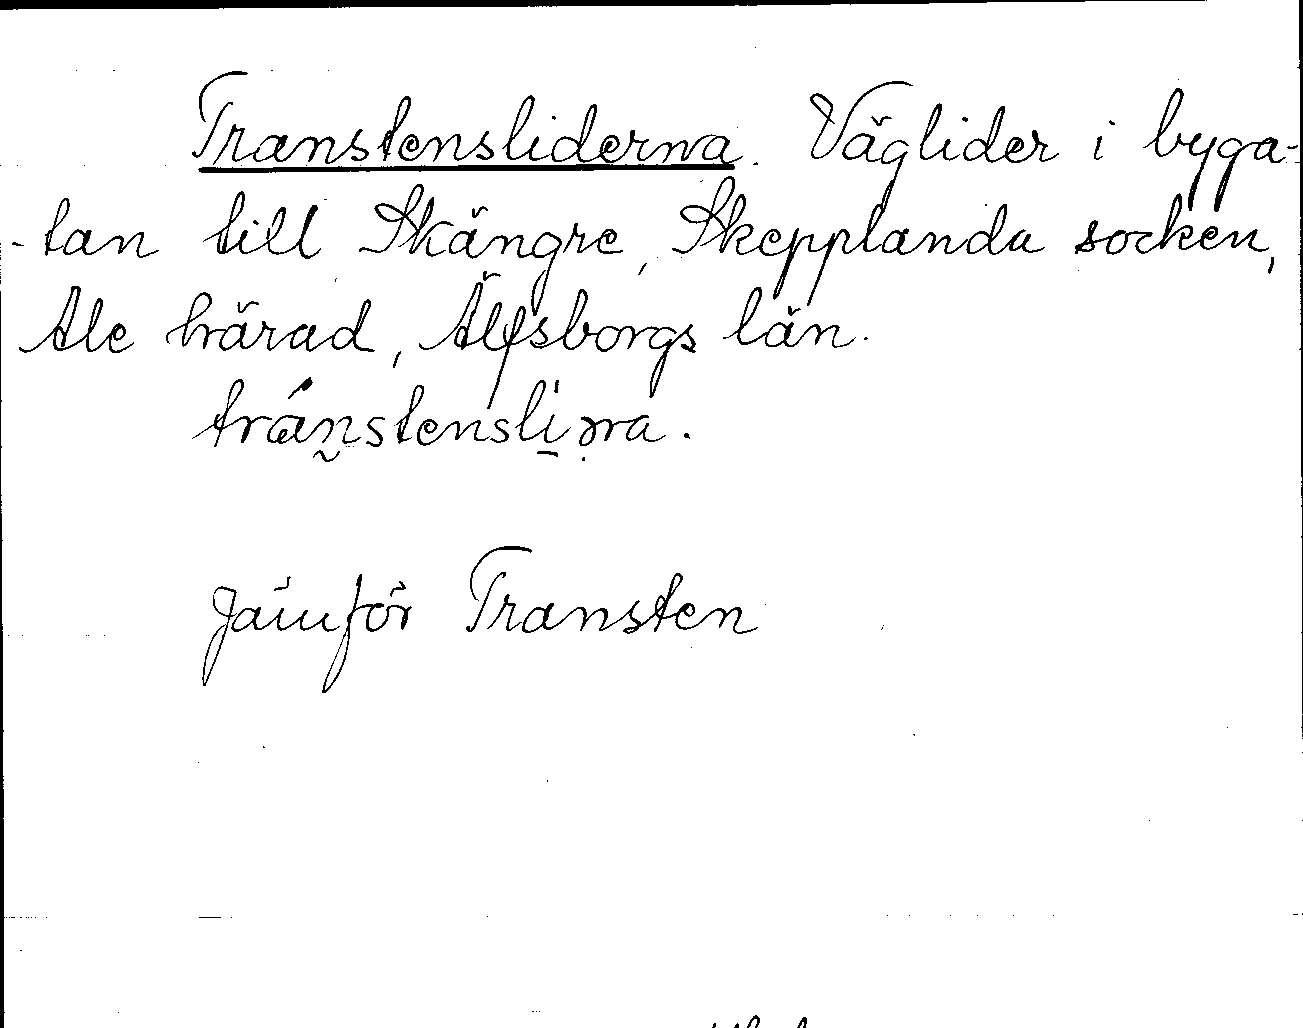 Transtensliderna. Väglider i byga-
-tan till Skängre, Skepplanda socken,
Ale härad, Älfsborgs län.
tránstenslira.
Jämför Transten